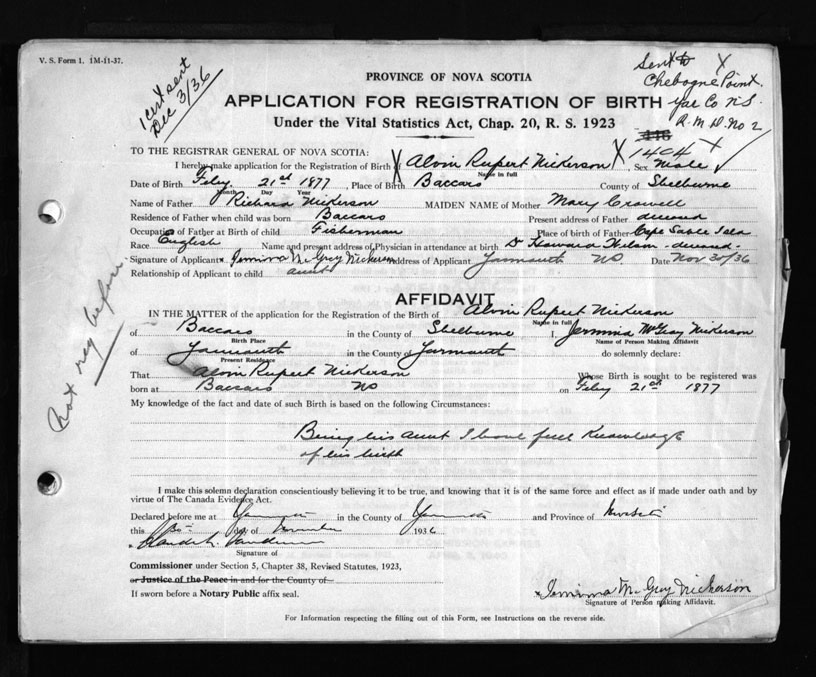 V. S. Form 1. 1M-11-37.
1 cert sent
Dec 3/36
Sent to X
Chebogue Point.
Yar Co N.S.
R.M.D. No 2
PROVINCE OF NOVA SCOTIA
APPLICATION FOR REGISTRATION OF BIRTH
Under the Vital Statistics Act, Chap. 20, R. S. 1923
1404 X
TO THE REGISTRAR GENERAL OF NOVA SCOTIA:
I hereby make application for the Registration of Birth of X Alvin Rupert Nickerson X, Sex Male ✓
Name in full
Date of Birth Feby. 21st 1877, Place of Birth Baccaro County of Shelburne
Month Day Year
Name of Father Richard Nickerson MAIDEN NAME of Mother Mary Crowell
Residence of Father when child was born Baccaro Present address of Father deceased
Occupation of Father at Birth of child Fisherman Place of birth of Father Cape Sable Isld
Race English Name and present address of Physician in attendance at birth Dr Howard Wilson - deceased -
Signature of Applicant x Jemima McGray Nickerson Address of Applicant Yarmouth NS. Date Nov 30/36
Relationship of Applicant to child aunt
Not reg before
AFFIDAVIT
IN THE MATTER of the application for the Registration of the Birth of Alvin Rupert Nickerson
Name in full
of Baccaro in the County of Shelburne I, Jemima McGray Nickerson
Birth Place Name of Person Making Affidavit
of Yarmouth in the County of Yarmouth do solemnly declare:
Present Residence
That Alvin Rupert Nickerson Whose Birth is sought to be registered was
born at Baccaro NS on Feby 21st 1877
My knowledge of the fact and date of such Birth is based on the following Circumstances:
Being his aunt I have full Knowledge
of his birth
I make this solemn declaration conscientiously believing it to be true, and knowing that it is of the same force and effect as if made under oath and by
virtue of The Canada Evidence Act.
Declared before me at Yarmouth in the County of Yarmouth and Province of Nova Scotia
this 30 day of November 1936
Signature of
Commissioner under Section 5, Chapter 38, Revised Statutes, 1923,
or Justice of the Peace in and for the County of
If sworn before a Notary Public affix seal.
x Jemima McGray Nickerson
Signature of Person making Affidavit.
For Information respecting the filling out of this Form, see Instructions on the reverse side.